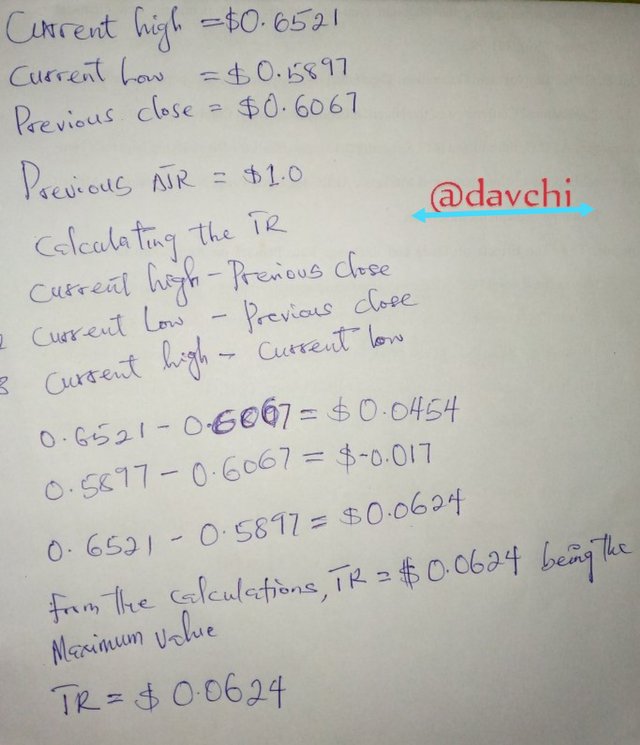 Current high = $0.6521
Current Low = $0.5897
Previous close = $0.6067
Previous ATR = $1.0
@davchi
Calculating the TR
Current high - Previous close
2 Current Low - Previous close
3 Current high - Current low
0.6521 - 0.6067 = $0.0454
0.5897 - 0.6067 = $-0.017
0.6521 - 0.5897 = $0.0624
from the calculations, TR = $0.0624 being the
Maximum value
TR = $0.0624